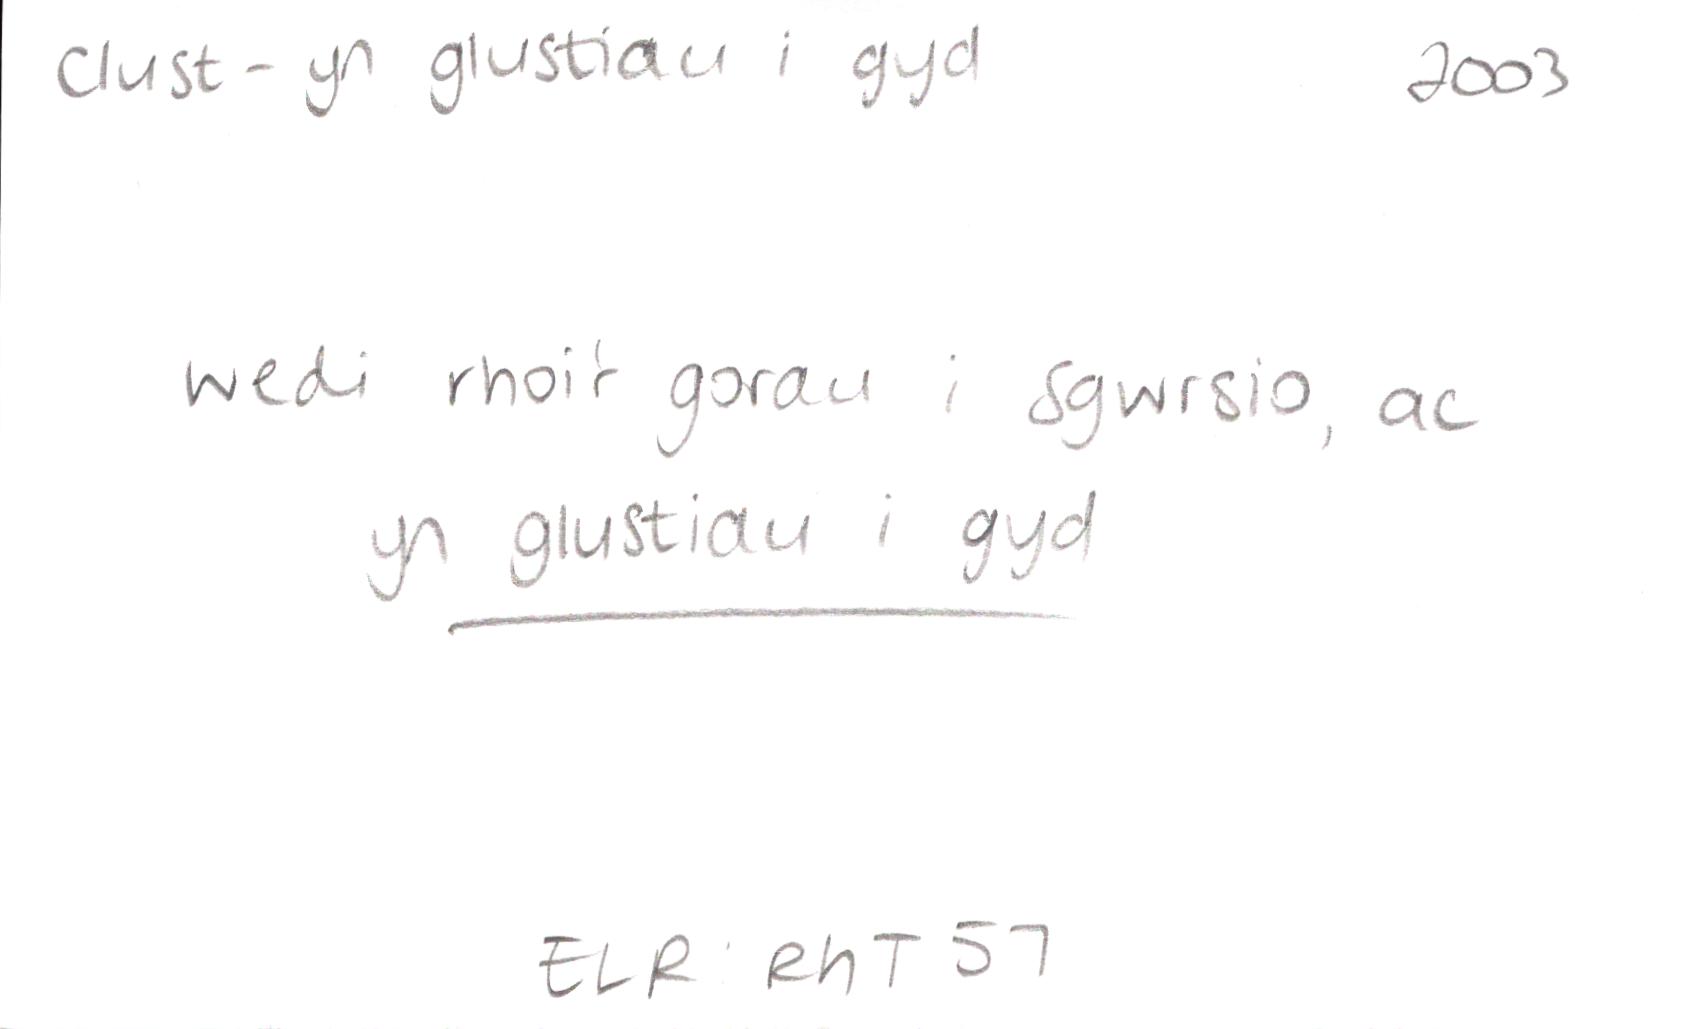 Clust - yn glustiau i gyd 2003
wedi rhoi'r gorau i sgwrsio, ac
yn glustiau i gyd
ELR: RhT 57